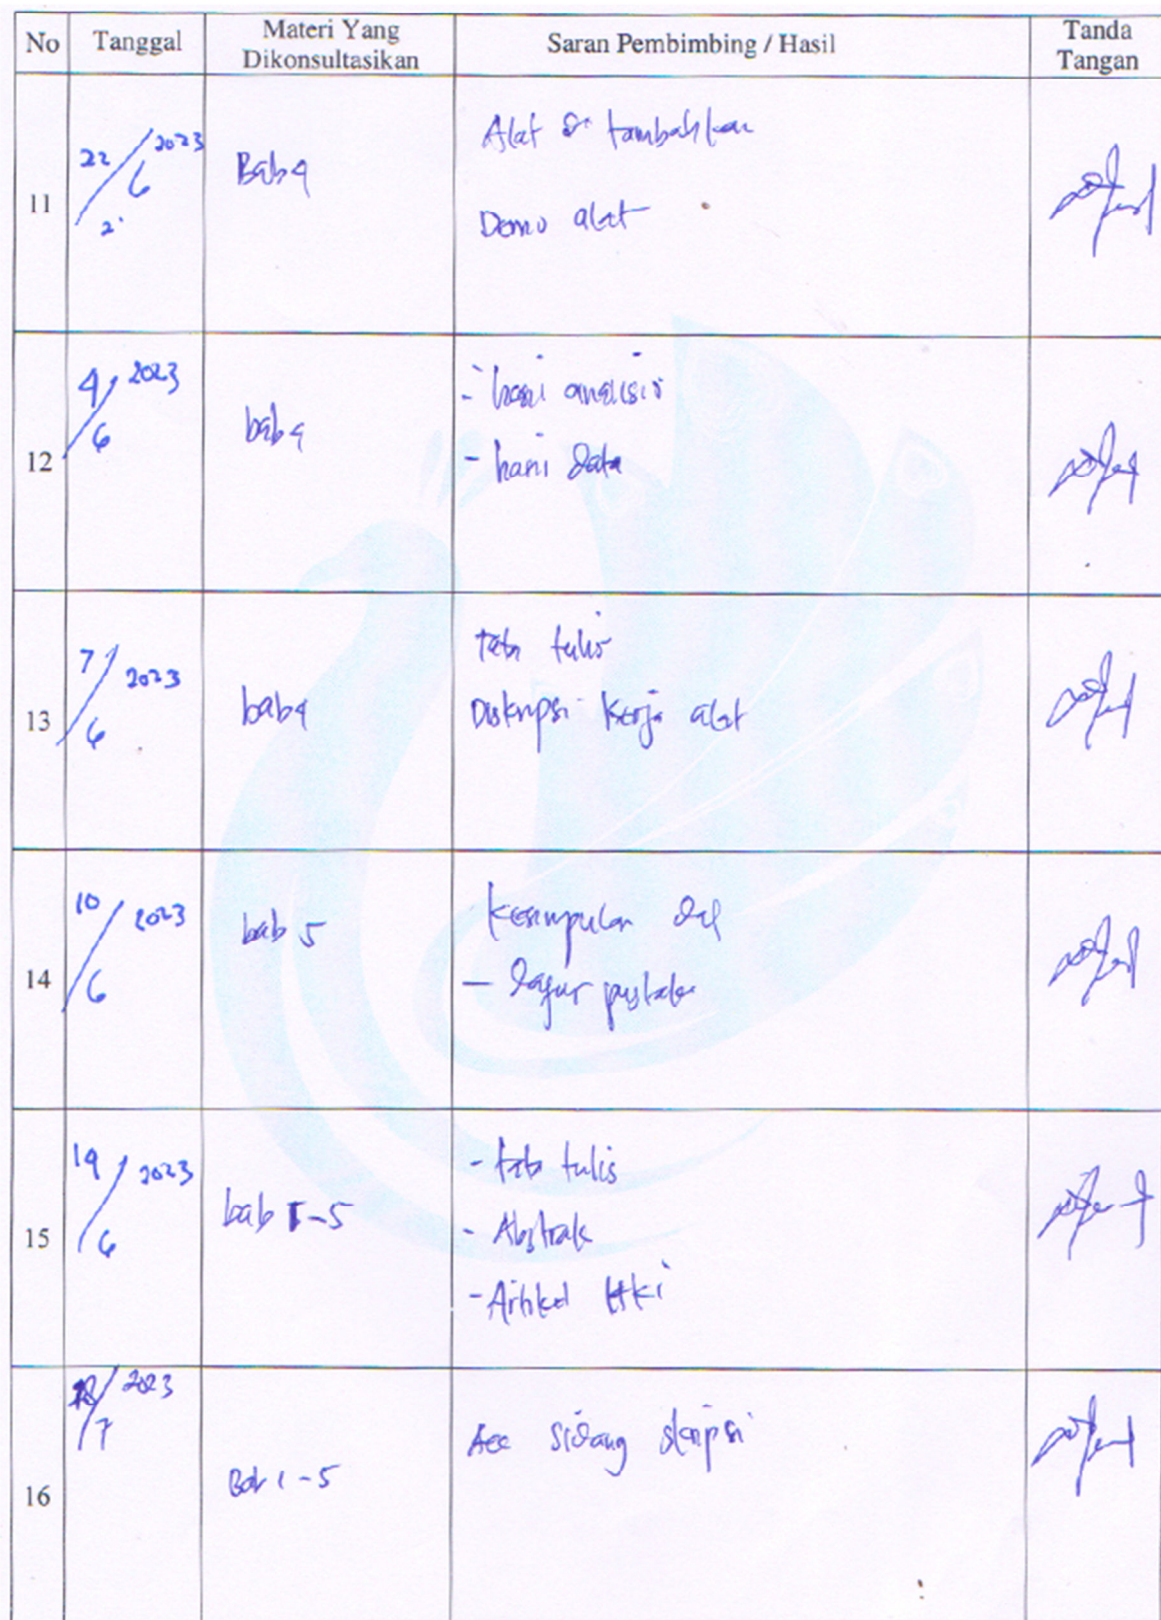 No Tanggal Materi Yang Dikonsultasikan Saran Pembimbing / Hasil Tanda Tangan
11 22/6 2023 Bab 4 Alat di tambahkan
Demo alat
12 4/6 2023 bab 4 - hasil analisis
- hasil data
13 7/6 2023 bab 4 tata tulis
Diskripsi kerja alat
14 10/6 2023 bab 5 kesimpulan
- daftar pustaka
15 19/6 2023 bab 1-5 - tata tulis
- Abstrak
- Artikel HKI
16 /7 2023 Bab 1-5 Acc sidang skripsi